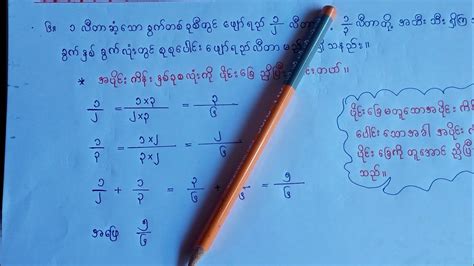 ၆။ ၁ လီတာဆံ့သော ခွက်တစ်ခုစီတွင် ဖျော်ရည် ၁/၂ လီတာ ၁/၃ လီတာတို့ အသီး သီး ရှိကြ
ခွက် နှစ် ခွက် လုံးတွင် စုစုပေါင်း ဖျော်ရည်လီတာ သနည်း။
* အပိုင်းကိန်း နှစ်ခုစလုံးကို ပိုင်းခြေ ညှိ တယ်။
၁/၂ = ၁×၃/၂×၃ = ၃/၆
၁/၃ = ၁×၂/၃×၂ = ၂/၆
၁/၂ + ၁/၃ = ၃/၆ + /၆ = ၅/၆
အဖြေ ၅/၆
ပိုင်းခြေ မတူသောအပိုင်း ကိန်း
ပေါင်း သောအခါ အပိုင်း
ပိုင်း ခြေကို တူအောင် ညှိပြီး
သည်။